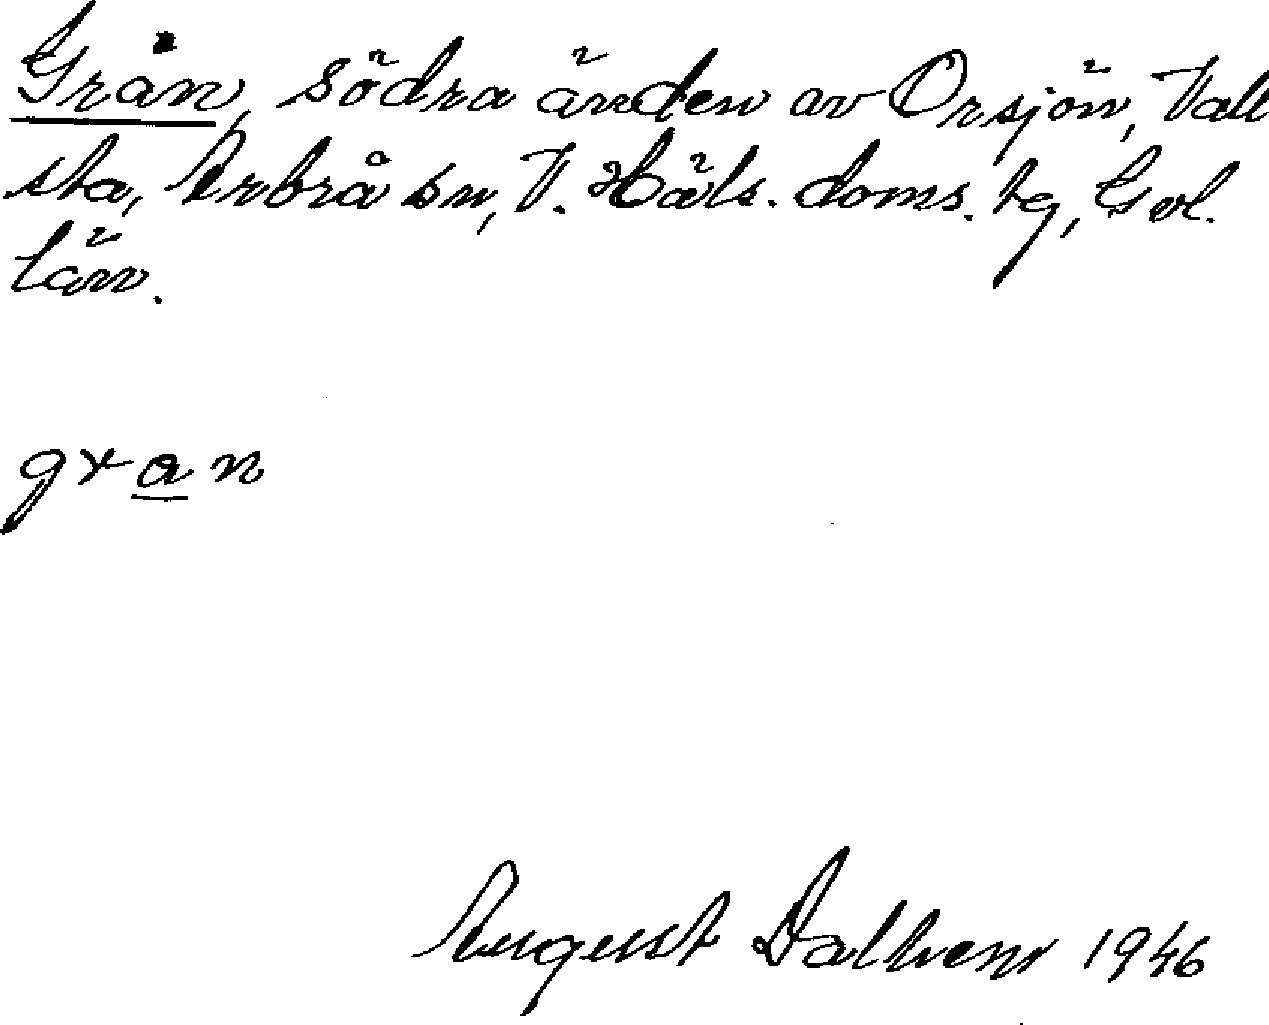 Grån, södra änden av Orsjön, Vall
sta, Arbrå sn, V. Häls. doms. tg, Gvl.
län.
gran
August Dalhem 1946